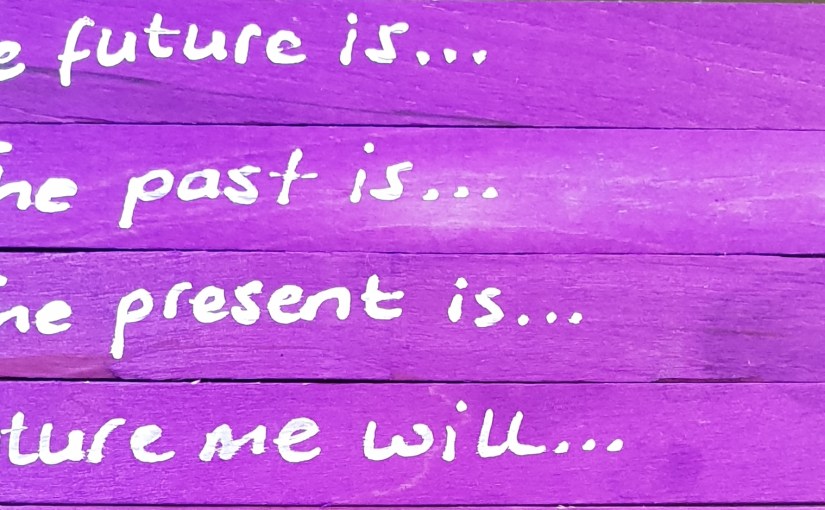 e future is...
he past is...
he present is...
ture me will...